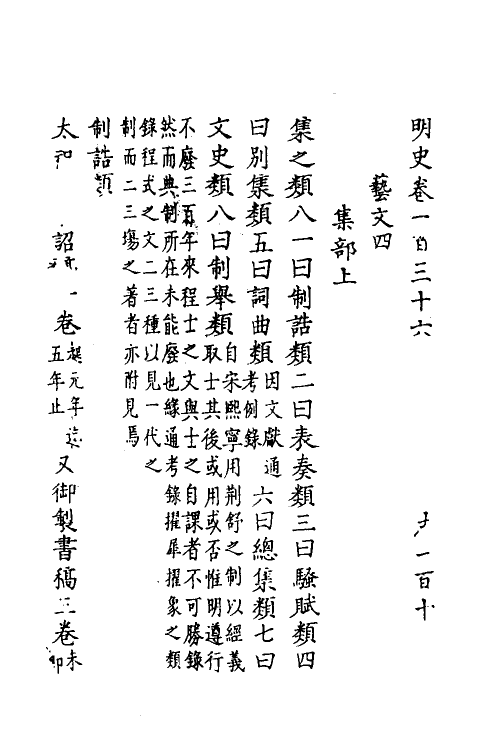 明史卷一百三十六
一百十
藝文四
集部上
集之類八一曰制誥類二曰表奏類三曰騷賦類四
曰別集類五曰詞曲類因文獻通考例錄六曰總集類七曰
文史類八曰制舉類自宋熙寧用荆舒之制以經義
取士其後或用或否惟明遵行
不廢三百年來程士之文與士之自課者不可勝錄
然而典制所在未能廢也緣通考錄擢犀擢象之類
錄程式之文二三種以見一代之
制而二三塲之著者亦附見焉
制誥類
太 詔 一卷 元年 五年止 又御製書稿三卷